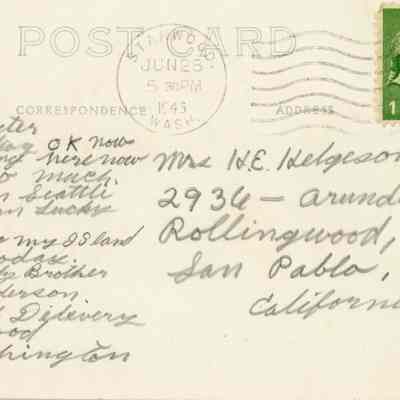 POST CARD
STANWOOD
JUN 26
5 30 PM
1945
WASH.
CORRESPONDENCE
ADDRESS
1
OK now
here now
much.
Seattle
Lucky
my Island
oday.
Brother
derson.
Delevery
ood
hington
Mrs H.E. Helgeson
2936 - Arund
Rollingwood,
San Pablo,
Californi